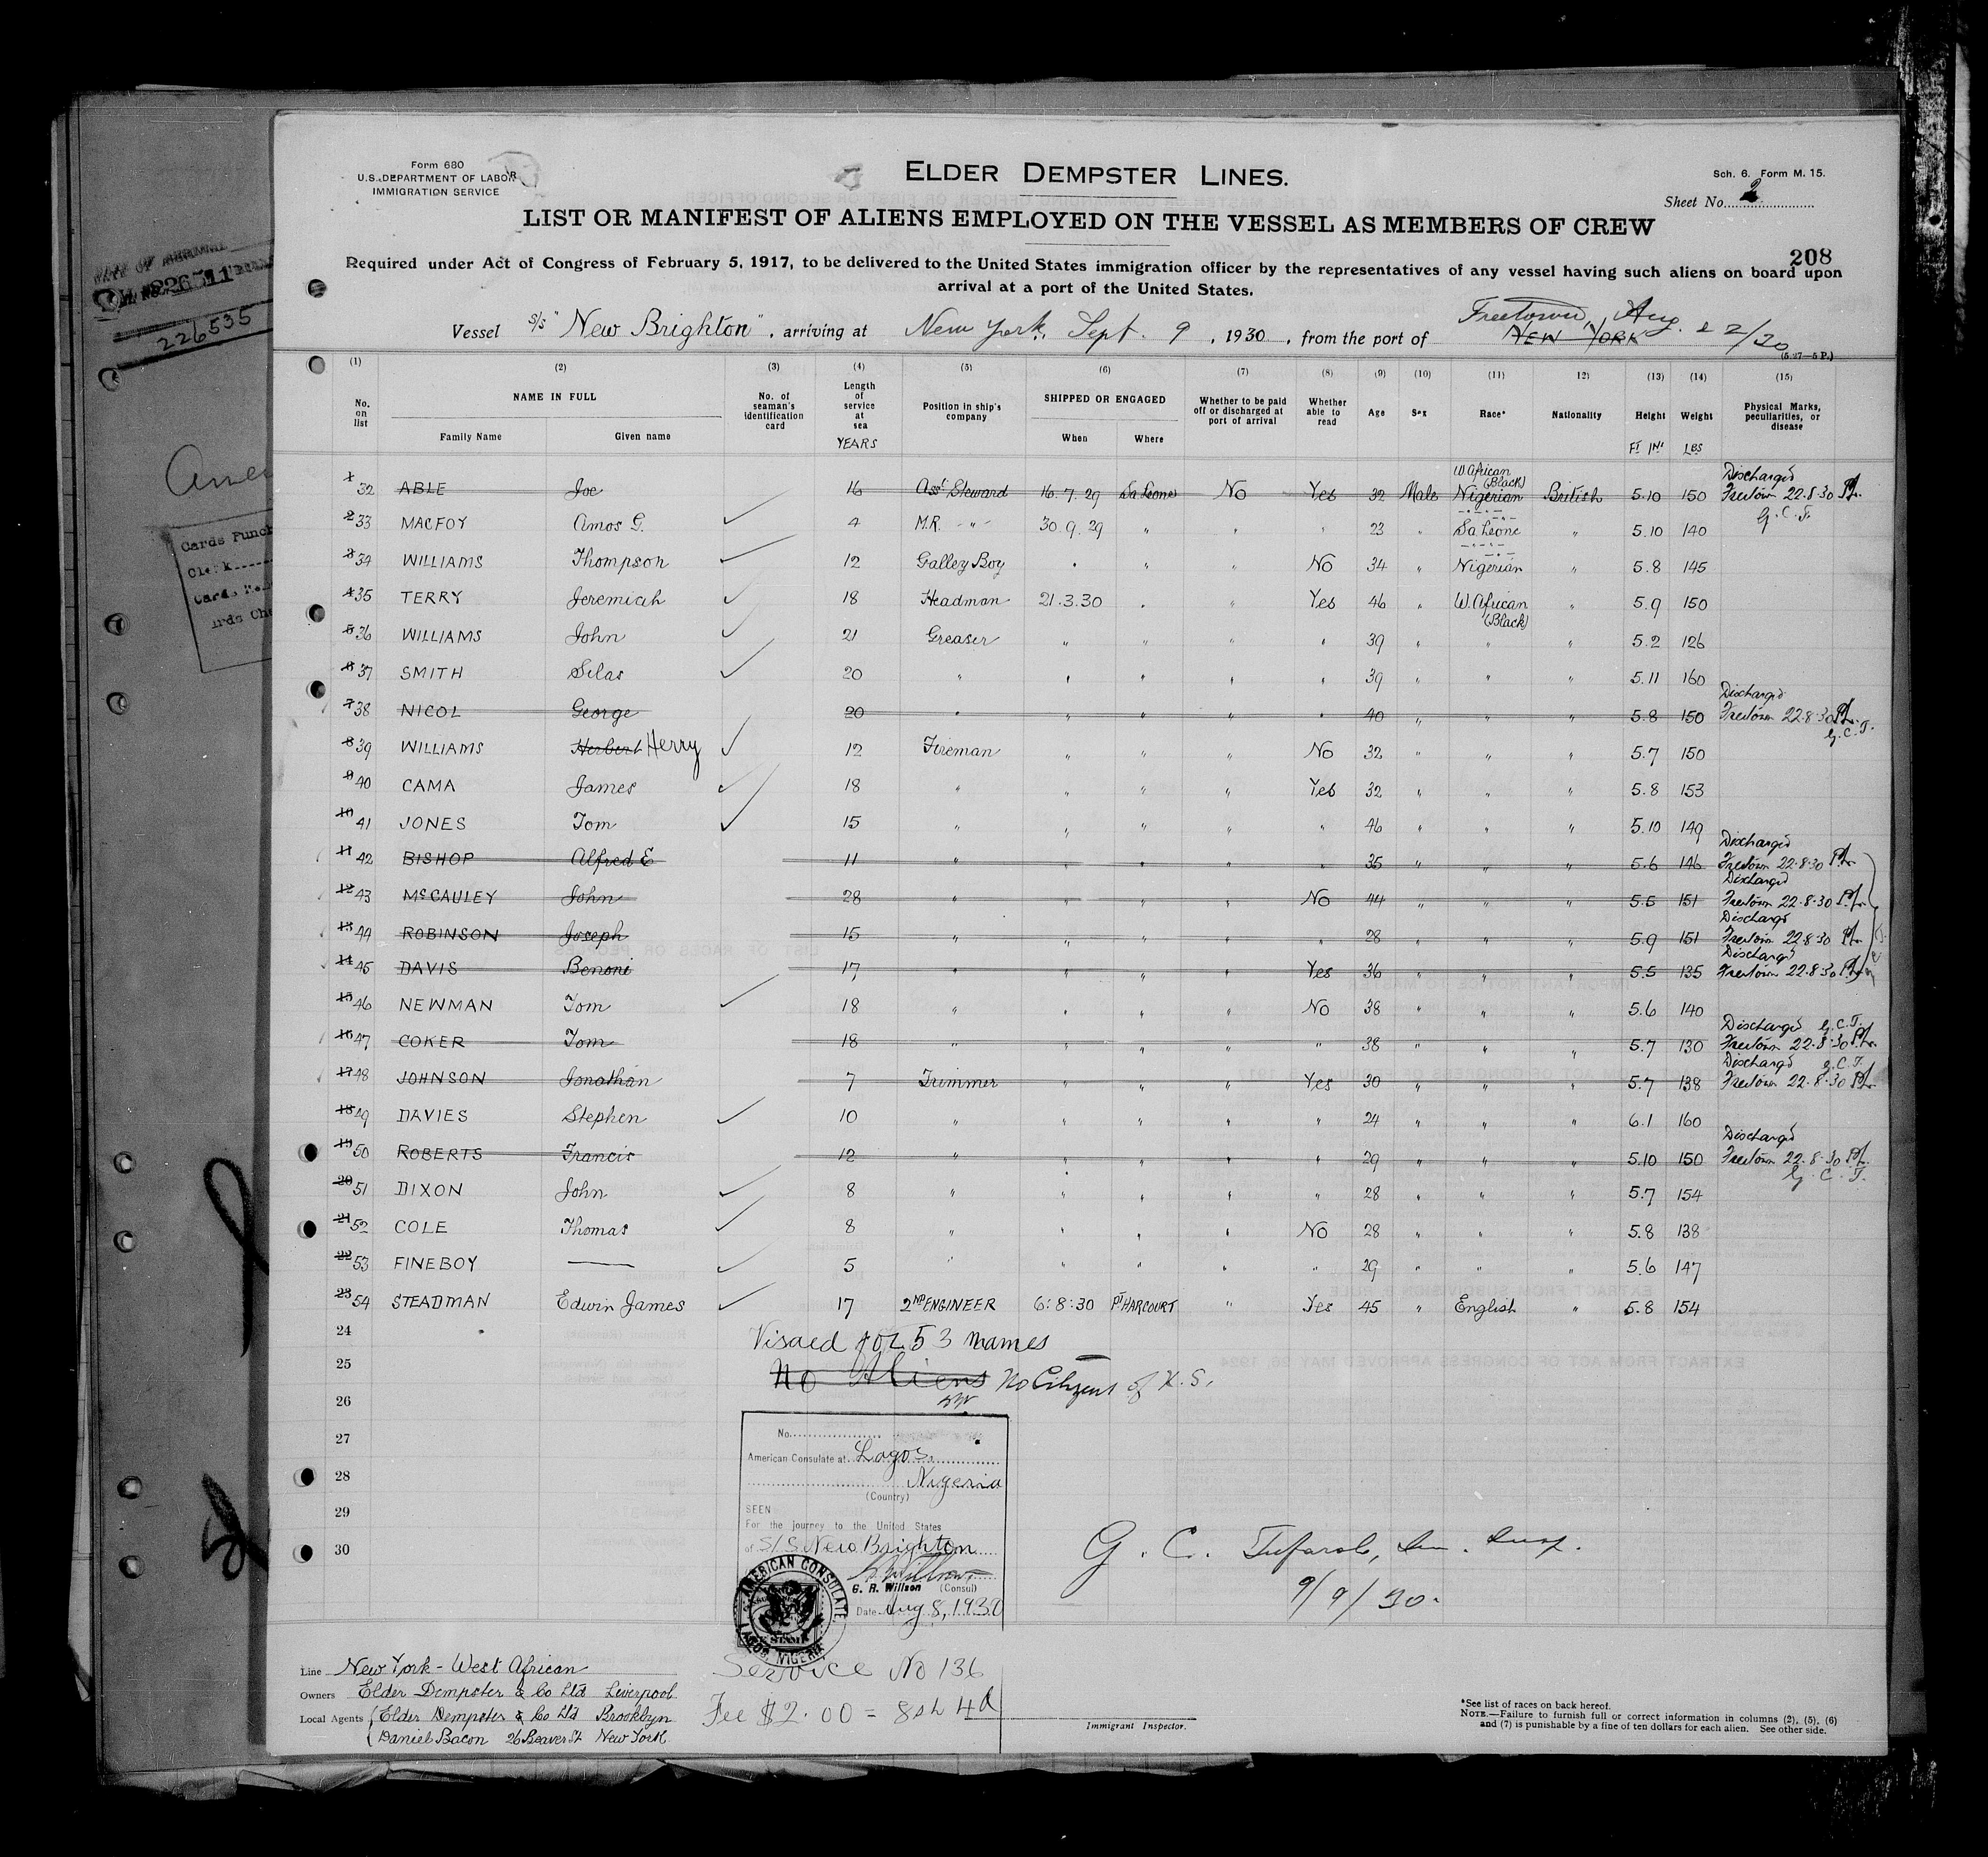 Form 680
U.S. DEPARTMENT OF LABOR
IMMIGRATION SERVICE
ELDER DEMPSTER LINES.
Sch. 6. Form M. 15.
Sheet No. 2
LIST OR MANIFEST OF ALIENS EMPLOYED ON THE VESSEL AS MEMBERS OF CREW
208
Required under Act of Congress of February 5, 1917, to be delivered to the United States immigration officer by the representatives of any vessel having such aliens on board upon
arrival at a port of the United States.
Vessel S/S "New Brighton", arriving at New York, Sept. 9, 1930, from the port of Freetown, Aug. 22/30 NEW YORK
(5 27—5 P.)
226535
Cards Punch
Clerk
(1) (2) (3) (4) (5) (6) (7) (8) (9) (10) (11) 12) (13) (14) (15)
No. on list NAME IN FULL Family Name Given name No. of seaman's identification card Length of service at sea YEARS Position in ship's company SHIPPED OR ENGAGED When Where Whether to be paid off or discharged at port of arrival Whether able to read Age Sex Race* Nationality Height FT INS Weight LBS Physical Marks, peculiarities, or disease
1 32 ABLE Joe 16 Asst Steward 16.7.29 Sa Leone No Yes 32 Male W. African (Black) Nigerian British 5.10 150 Discharged Freetown 22.8.30 G.C.T.
2 33 MACFOY Amos G. ✓ 4 M.R. -"- 30.9.29 " " " 23 " Sa Leone " 5.10 140
3 34 WILLIAMS Thompson ✓ 12 Galley Boy " " " No 34 " Nigerian " 5.8 145
4 35 TERRY Jeremiah ✓ 18 Headman 21.3.30 " " Yes 46 " W. African (Black) " 5.9 150
5 36 WILLIAMS John ✓ 21 Greaser " " " " 39 " " " 5.2 126
6 37 SMITH Silas ✓ 20 " " " " " 39 " " " 5.11 160
7 38 NICOL George 20 " " " " " 40 " " " 5.8 150 Discharged Freetown 22.8.30 G.C.T.
8 39 WILLIAMS Herbert Herry ✓ 12 Fireman " " " No 32 " " " 5.7 150
9 40 CAMA James ✓ 18 " " " " Yes 32 " " " 5.8 153
10 41 JONES Tom ✓ 15 " " " " " 46 " " " 5.10 149
11 42 BISHOP Alfred E 11 " " " " " 35 " " " 5.6 146 Discharged Freetown 22.8.30
12 43 McCAULEY John 28 " " " " No 44 " " " 5.5 151 Discharged Freetown 22.8.30
13 44 ROBINSON Joseph 15 " " " " " 28 " " " 5.9 151 Discharged Freetown 22.8.30
14 45 DAVIS Benoni 17 " " " " Yes 36 " " " 5.5 135 Discharged Freetown 22.8.30
15 46 NEWMAN Tom ✓ 18 " " " " No 38 " " " 5.6 140
16 47 COKER Tom 18 " " " " " 38 " " " 5.7 130 Discharged G.C.T. Freetown 22.8.30
17 48 JOHNSON Jonathan 7 Trimmer " " " Yes 30 " " " 5.7 138 Discharged G.C.T. Freetown 22.8.30
18 49 DAVIES Stephen ✓ 10 " " " " " 24 " " " 6.1 160
19 50 ROBERTS Francis 12 " " " " " 29 " " " 5.10 150 Discharged Freetown 22.8.30 G.C.T.
20 51 DIXON John ✓ 8 " " " " " 28 " " " 5.7 154
21 52 COLE Thomas ✓ 8 " " " " No 28 " " " 5.8 138
22 53 FINEBOY —— ✓ 5 " " " " " 29 " " " 5.6 147
23 54 STEADMAN Edwin James ✓ 17 2ND ENGINEER 6:8:30 PT HARCOURT " Yes 45 " English " 5.8 154
24
25
26
27
28
29
30
Visaed for 53 names
No Aliens No Citizens of U.S.
No.
American Consulate at Lagos
Nigeria
(Country)
SEEN
For the journey to the United States
of S/S New Brighton
G. R. Willson (Consul)
Date Aug 8, 1930
AMERICAN CONSULATE
LAGOS, NIGERIA
Service No 136
Fee $2.00 = 8sh 4d
G. C.
9/9/30.
Immigrant Inspector.
Line New York - West African
Owners Elder Dempster & Co Ltd Liverpool
Local Agents Elder Dempster & Co Ltd Brooklyn
Daniel Bacon 26 Beaver St New York
*See list of races on back hereof.
NOTE.—Failure to furnish full or correct information in columns (2), (5), (6)
and (7) is punishable by a fine of ten dollars for each alien. See other side.